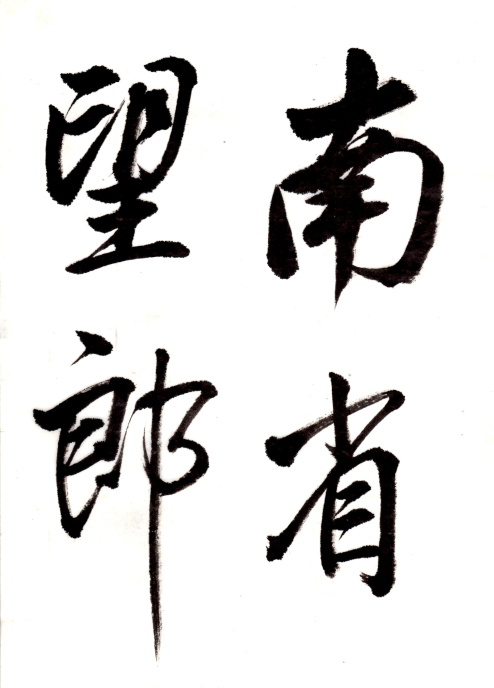 南省
望郎